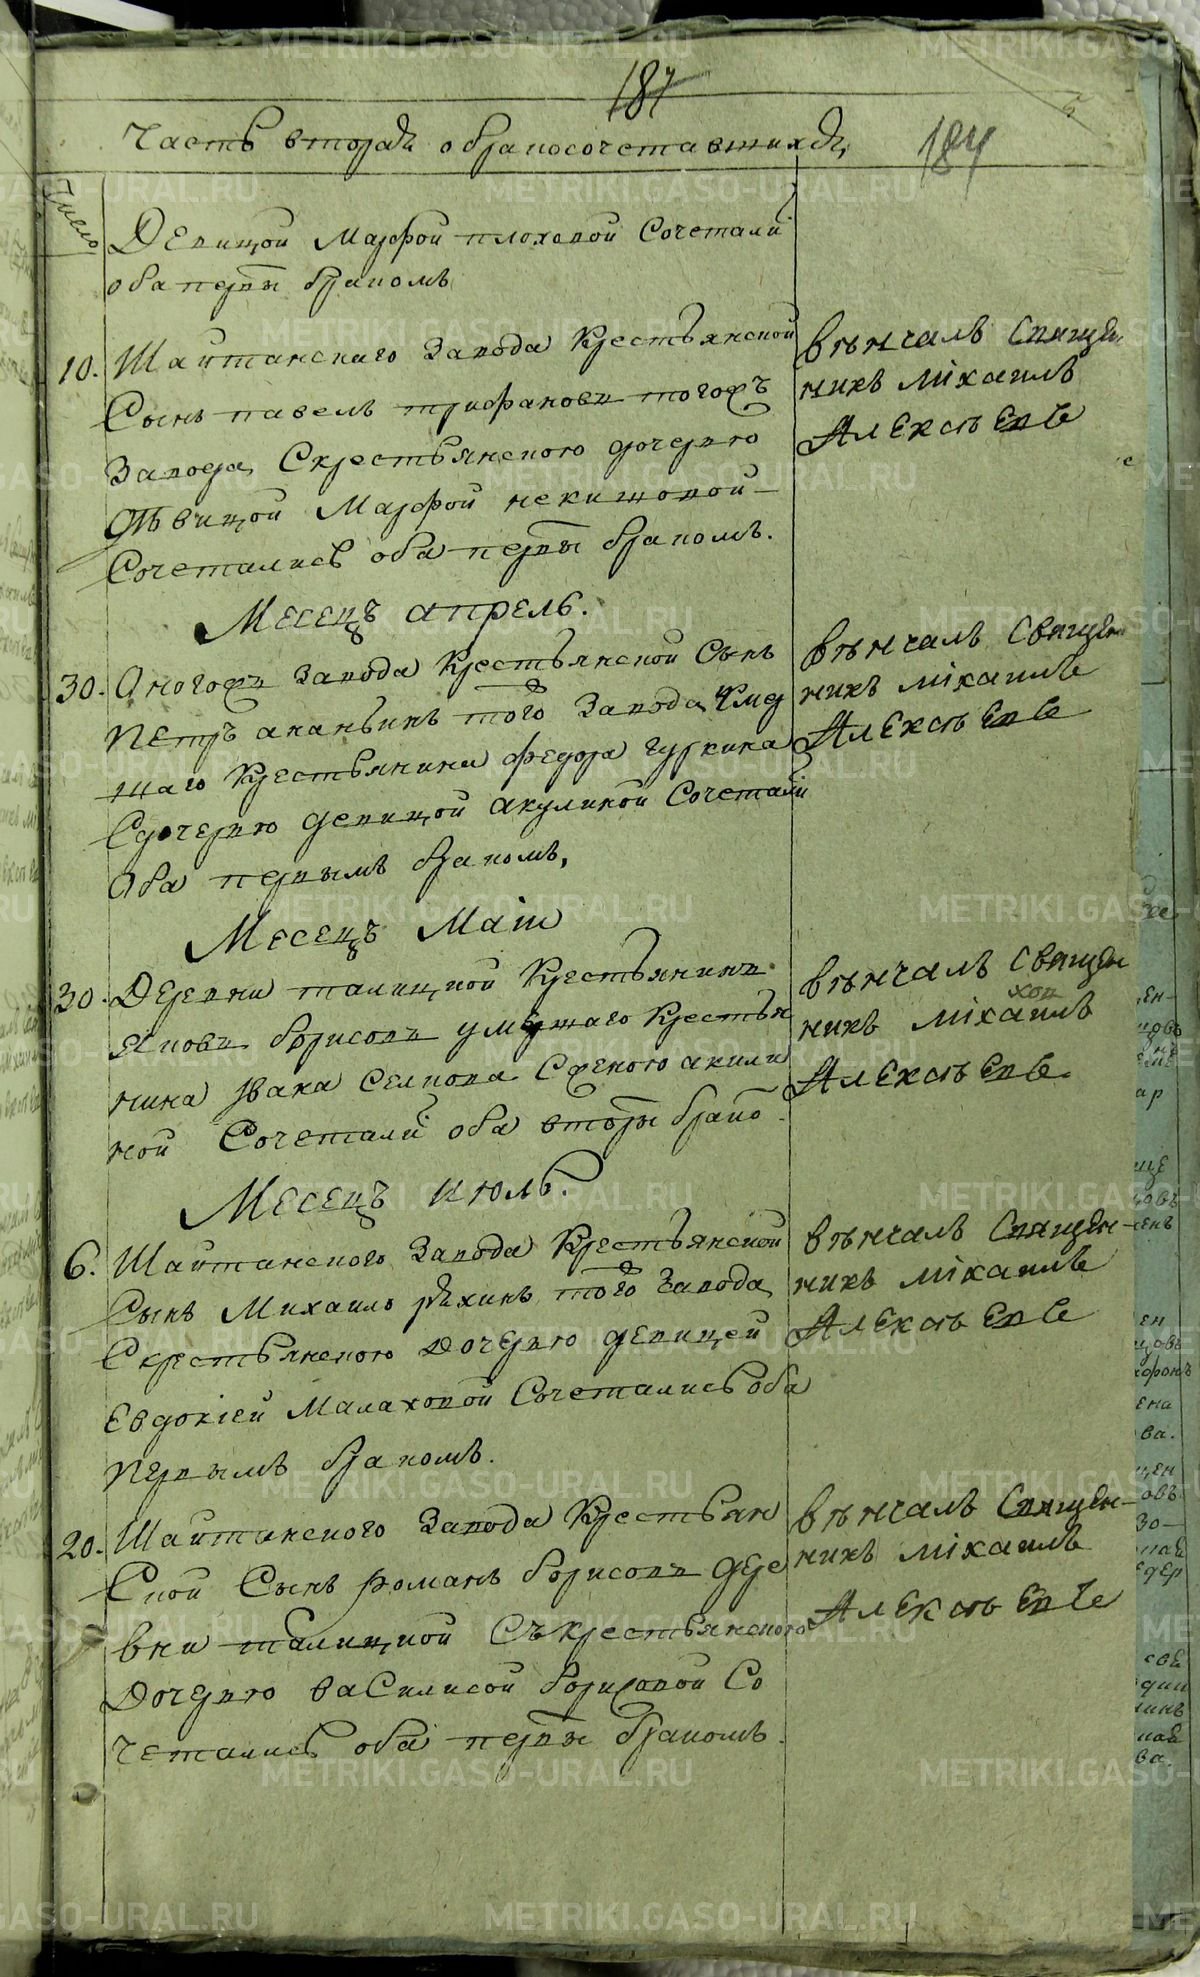 187
Часть вторая о бракосочетавшихся,
184
Число
Девицой Марфой плоховой Сочетали
оба первы бракомъ
10. Шайтанскаго Завода Крестьянской
Сынъ павелъ трифановъ тогожъ
Завода, Скрестьянскою дочерью
дѣвицой Марфой некишовой
Сочетались оба первы бракомъ.
Вѣнчалъ Священ
никъ Міхаилъ
Алексѣевъ
Месецъ апрель.
30. Оногожъ Завода Крестьянской Сынъ
Петръ ананьинъ того Завода, Умер
шаго Крестьянина федора гуркина
Сдочерью девицой акулиной Сочетали
Оба первымъ бракомъ,
Вѣнчалъ Священ
никъ Міхаилъ
Алексѣевъ
Месецъ Маіи
30. Деревни талицкой Крестьянинъ
Яковъ борисовъ умершаго Крестья
нина Ивана Селкова Сженою акили
ной Сочетали оба вторы брако
Вѣнчалъ Священ
никъ Міхаилъ
Алексѣевъ
Месецъ июль.
6. Шайтанского Завода Крестьянской
Сынъ Михаило рѣхинъ того Завода,
Скрестьянскою Дочерью девицей
Евдокіей Малаховой Сочетались оба
Первымъ бракомъ.
Вѣнчалъ Священ-
никъ Міхаилъ
Алексѣевъ
20. Шайтанского Завода Крестьян
Ской Сынъ романъ борисовъ дере
вни талицкой Съкрестьянскою
Дочерью ваСилисой борисовой Со
четались оба первы бракомъ.
Вѣнчалъ Священ-
никъ Міхаилъ
Алексѣевъ
METRIKI.GASO-URAL.RU